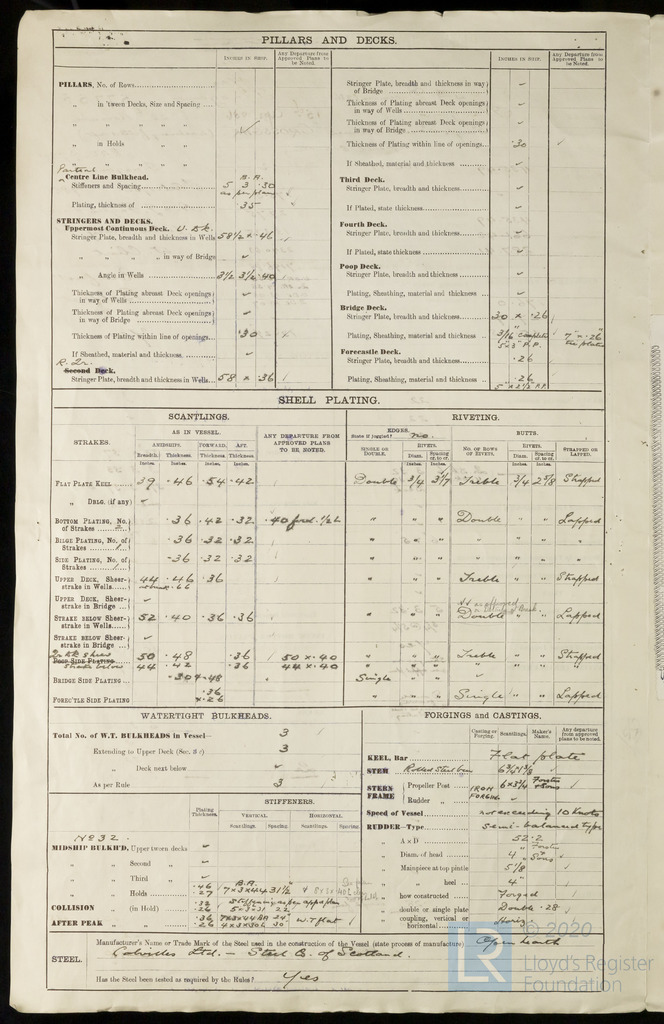 PILLARS AND DECKS.
INCHES IN SHIP. Any Departure from Approved Plans to be Noted.
PILLARS, No. of Rows
„ in 'tween Decks, Size and Spacing
„ „ „ „
„ in Holds „
„ „ „ „
Partial
Centre Line Bulkhead. B.A.
Stiffeners and Spacing 5 3 .30
as per plan
Plating, thickness of .35
STRINGERS AND DECKS.
Uppermost Continuous Deck. U. Dk.
Stringer Plate, breadth and thickness in Wells 58½ x .46
„ „ „ in way of Bridge
„ Angle in Wells 3½ 3½ .40
Thickness of Plating abreast Deck openings in way of Wells
Thickness of Plating abreast Deck openings in way of Bridge
Thickness of Plating within line of openings .30
If Sheathed, material and thickness
R. Qr.
Second Deck.
Stringer Plate, breadth and thickness in Wells 58 x .36
INCHES IN SHIP. Any Departure from Approved Plans to be Noted.
Stringer Plate, breadth and thickness in way of Bridge
Thickness of Plating abreast Deck openings in way of Wells
Thickness of Plating abreast Deck openings in way of Bridge
Thickness of Plating within line of openings .30
If Sheathed, material and thickness
Third Deck.
Stringer Plate, breadth and thickness
If Plated, state thickness
Fourth Deck.
Stringer Plate, breadth and thickness
If Plated, state thickness
Poop Deck.
Stringer Plate, breadth and thickness
Plating, Sheathing, material and thickness
Bridge Deck.
Stringer Plate, breadth and thickness 30 x .26
Plating, Sheathing, material and thickness 3/16" complete 7" x .26"
5" x 3" P.P. tie plates
Forecastle Deck.
Stringer Plate, breadth and thickness .26
Plating, Sheathing, material and thickness .26
5" x 2½ P.P.
SHELL PLATING.
SCANTLINGS. RIVETING.
STRAKES. AS IN VESSEL. ANY DEPARTURE FROM APPROVED PLANS TO BE NOTED.
AMIDSHIPS. FORWARD. AFT.
Breadth. Thickness. Thickness. Thickness.
Inches. Inches. Inches. Inches.
EDGES. State if joggled? No. BUTTS.
SINGLE OR DOUBLE. RIVETS. NO. OF ROWS OF RIVETS. RIVETS. STRAPPED OR LAPPED.
Diam. Spacing cr. to cr. Diam. Spacing cr. to cr.
Inches. Inches. Inches. Inches.
FLAT PLATE KEEL 39 .46 .54 .42 Double 3/4 Treble 3/4 2 5/8 Strapped
„ DBLG. (if any)
BOTTOM PLATING, No. of Strakes .36 .42 .32 .40 ford. ½ L „ „ „ Double „ „ Lapped
BILGE PLATING, No. of Strakes 1 .36 .32 .32 „ „ „ „ „ „ „
SIDE PLATING, No. of Strakes 1 .36 .32 .32 „ „ „ „ „ „ „
UPPER DECK, Sheerstrake in Wells 44 .46 .36 „ „ „ Treble „ „ Strapped
.66
UPPER DECK, Sheerstrake in Bridge
STRAKE BELOW Sheerstrake in Wells 52 .40 .36 .36 „ „ „ Double „ „ Lapped
STRAKE BELOW Sheerstrake in Bridge
POOP SIDE PLATING 50 .48 .36 50 x .40 „ „ „ Treble „ „ Strapped
strake below 44 .42 .36 44 x .40 „ „ „ „ „ „ „
BRIDGE SIDE PLATING .30 & .48 Single „ „
FOREC'TLE SIDE PLATING .36 x .26 „ „ „ Single „ „ Lapped
WATERTIGHT BULKHEADS.
Total No. of W.T. BULKHEADS in Vessel— 3
Extending to Upper Deck (Sec. 3 c) 3
„ Deck next below
As per Rule 3
STIFFENERS.
Plating Thickness. VERTICAL HORIZONTAL
Scantlings. Spacing Scantlings. Spacing.
No 32.
MIDSHIP BULKH'D, Upper tween decks
„ „ Second „
„ „ Third „
„ „ Holds .46 .27 B.A. 7 x 3 x .44 31½
COLLISION „ (in Hold) .32 .26 Stiffening as per app plan 22
AFTER PEAK „ „ .36 .26 7x3x.44 BA 24" W.T. flat
4x3x.30 L 30
FORGINGS and CASTINGS.
Casting or Forging. Scantlings. Maker's Name. Any departure from approved plans to be noted.
KEEL, Bar Flat plate
STEM Rolled Steel bar
STERN FRAME Propeller Post IRON FORGING 6 x 3¼ Forster & Sons
Rudder „
Speed of Vessel not exceeding 10 knots
RUDDER—Type Semi-balanced type
„ A x D 52.2
„ Diam. of head 4" Forster & Sons
„ Mainpiece at top pintle 5 1/8
„ „ heel 4"
„ how constructed Forged
„ double or single plate Double .28
„ coupling, vertical or horizontal Horiz.
STEEL. Manufacturer's Name or Trade Mark of the Steel used in the construction of the Vessel (state process of manufacture) Open hearth
Colvilles Ltd. — Steel Co. of Scotland.
Has the Steel been tested as required by the Rules? Yes
© 2020
LR
Lloyd's Register
Foundation